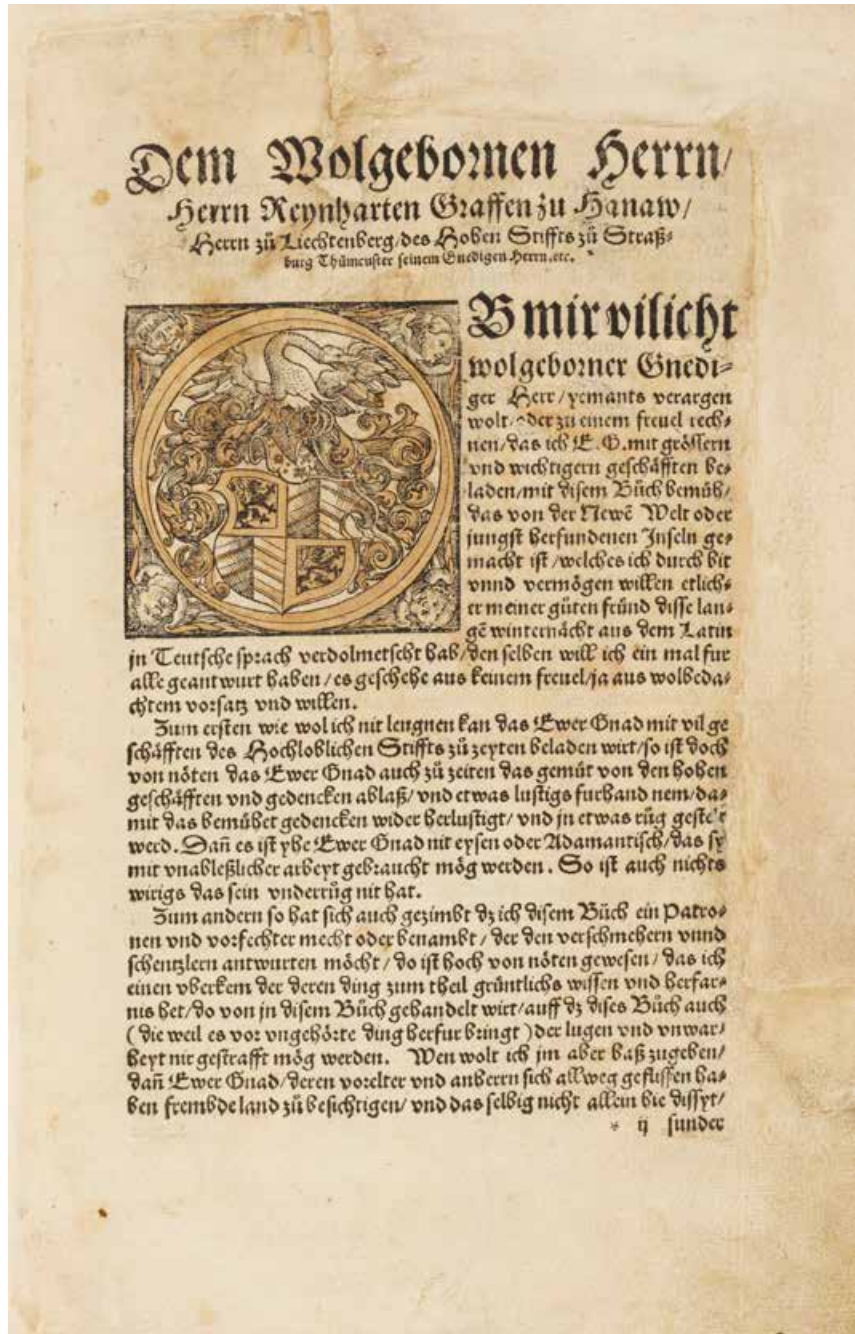 Dem Wolgebornen Herrn/
Herrn Reynharten Graffen zu Hanaw/
Herrn zů Liechtenberg/des Hohen Stiffts zů Straß-
burg Thůmeuster seinem Gnedigen Herrn.etc.
B mir vilicht
wolgeborner Gnedi-
ger Herr/yemants verargen
wolt/oder zu einem freuel rech-
nen/das ich E.G.mit grössern
vnd wichtigern geschäfften be-
laden/mit disem Bůch bemüh/
das von der Newē Welt oder
jungst herfundenen Inseln ge-
macht ist/welches ich durch bit
vnnd vermögen willen etlich-
er meiner gůten fründ disse lan-
gē winternächt aus dem Latin
jn Teutsche sprach verdolmetscht hab/den selben will ich ein mal fur
alle geantwurt haben/es geschehe aus keinem freuel/ja aus wolbeda-
chtem vorsatz vnd willen.
Zum ersten wie wol ich nit lengnen kan das Ewer Gnad mit vil ge
schäfften des Hochloblichen Stiffts zů zeyten beladen wirt/so ist doch
von nöten das Ewer Gnad auch zů zeiten das gemüt von den hohen
geschäfften vnd gedencken ablaß/vnd etwas lustigs furhand nem/da-
mit das bemühet gedencken wider herlustigt/vnd jn etwas růg
werd.Dañ es ist yhe Ewer Gnad nit eysen oder Adamantisch/das sy
mit vnableßlicher arbeyt gebraucht mög werden. So ist auch nichts
wirigs das sein vnderrůg nit hat.
Zum andern so hat sich auch gezimbt dz ich disem Bůch ein Patro-
nen vnd vorfechter mecht oder benambt/der den verschmehern vnnd
schentzlern antwurten möcht/do ist hoch von nöten gewesen/das ich
einen vberkem der deren ding zum theil gründtlichs wissen vnd herfar-
nis het/do von jn disem Bůch gehandelt wirt/auff dz dises Bůch auch
(die weil es vor vngehörte ding herfur bringt)der lugen vnd vnwar-
heyt nit gestrafft mög werden. Wen wolt ich jm aber baß zugeben/
dañ Ewer Gnad/deren vorelter vnd anherrn sich allweg geflissen ha-
ben frembde land zů besichtigen/vnd das selbig nicht allein hie dissyt/
* ij sunder